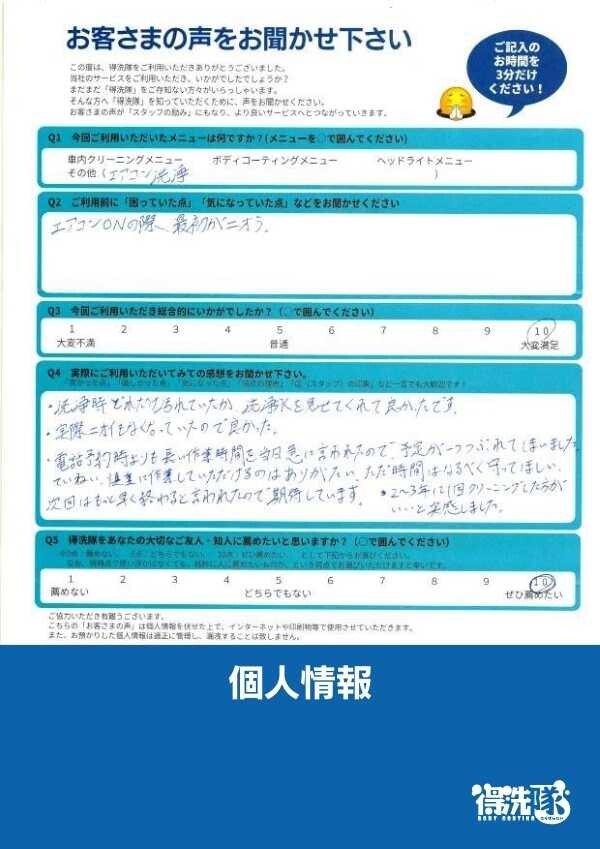 お客さまの声をお聞かせ下さい
ご記入の
お時間を
3分だけ
ください！
この度は、得洗隊をご利用いただきありがとうございました。
当社のサービスをご利用いただき、いかがでしたでしょうか？
まだまだ「得洗隊」をご存知ない方々がいらっしゃいます。
そんな方へ「得洗隊」を知っていただくために、声をお聞かせください。
お客さまの声が「スタッフの励み」にもなり、より良いサービスへとつながっていきます。
Q1 今回ご利用いただいたメニューは何ですか？(メニューを○で囲んでください)
車内クリーニングメニュー ボディコーティングメニュー ヘッドライトメニュー
その他（エアコン洗浄 ）
Q2 ご利用前に「困っていた点」「気になっていた点」などをお聞かせください
エアコンONの際、最初がニオう。
Q3 今回ご利用いただき総合的にいかがでしたか？（○で囲んでください）
1 2 3 4 5 6 7 8 9 10
大変不満 普通 大変満足
Q4 実際にご利用いただいてみての感想をお聞かせ下さい。
「良かった点」「嬉しかった点」「気になった点」「満足の理由」「店（スタッフ）の印象」など一言でも大歓迎です！
・洗浄時どれだけ汚れていたか、洗浄水を見せてくれて良かったです。
・実際ニオイもなくなっていたので良かった。
・電話予約時よりも長い作業時間を当日急に言われたので、予定が一つつぶれてしまいました。
ていねい、慎重に作業していただけるのはありがたい。ただ時間はなるべく守ってほしい。
次回はもっと早く終わると言われたので期待しています。
・2〜3年に1回クリーニングした方が
いいと実感しました。
Q5 得洗隊をあなたの大切なご友人・知人に薦めたいと思いますか？（○で囲んでください）
1 2 3 4 5 6 7 8 9 10
薦めない どちらでもない ぜひ薦めたい
ご協力いただき有難うございます。
こちらの「お客さまの声」は個人情報を伏せた上で、インターネットや印刷物等で使用させていただきます。
また、お預かりした個人情報は適正に管理し、漏洩することは致しません。
個人情報
得洗隊
BODY COATING